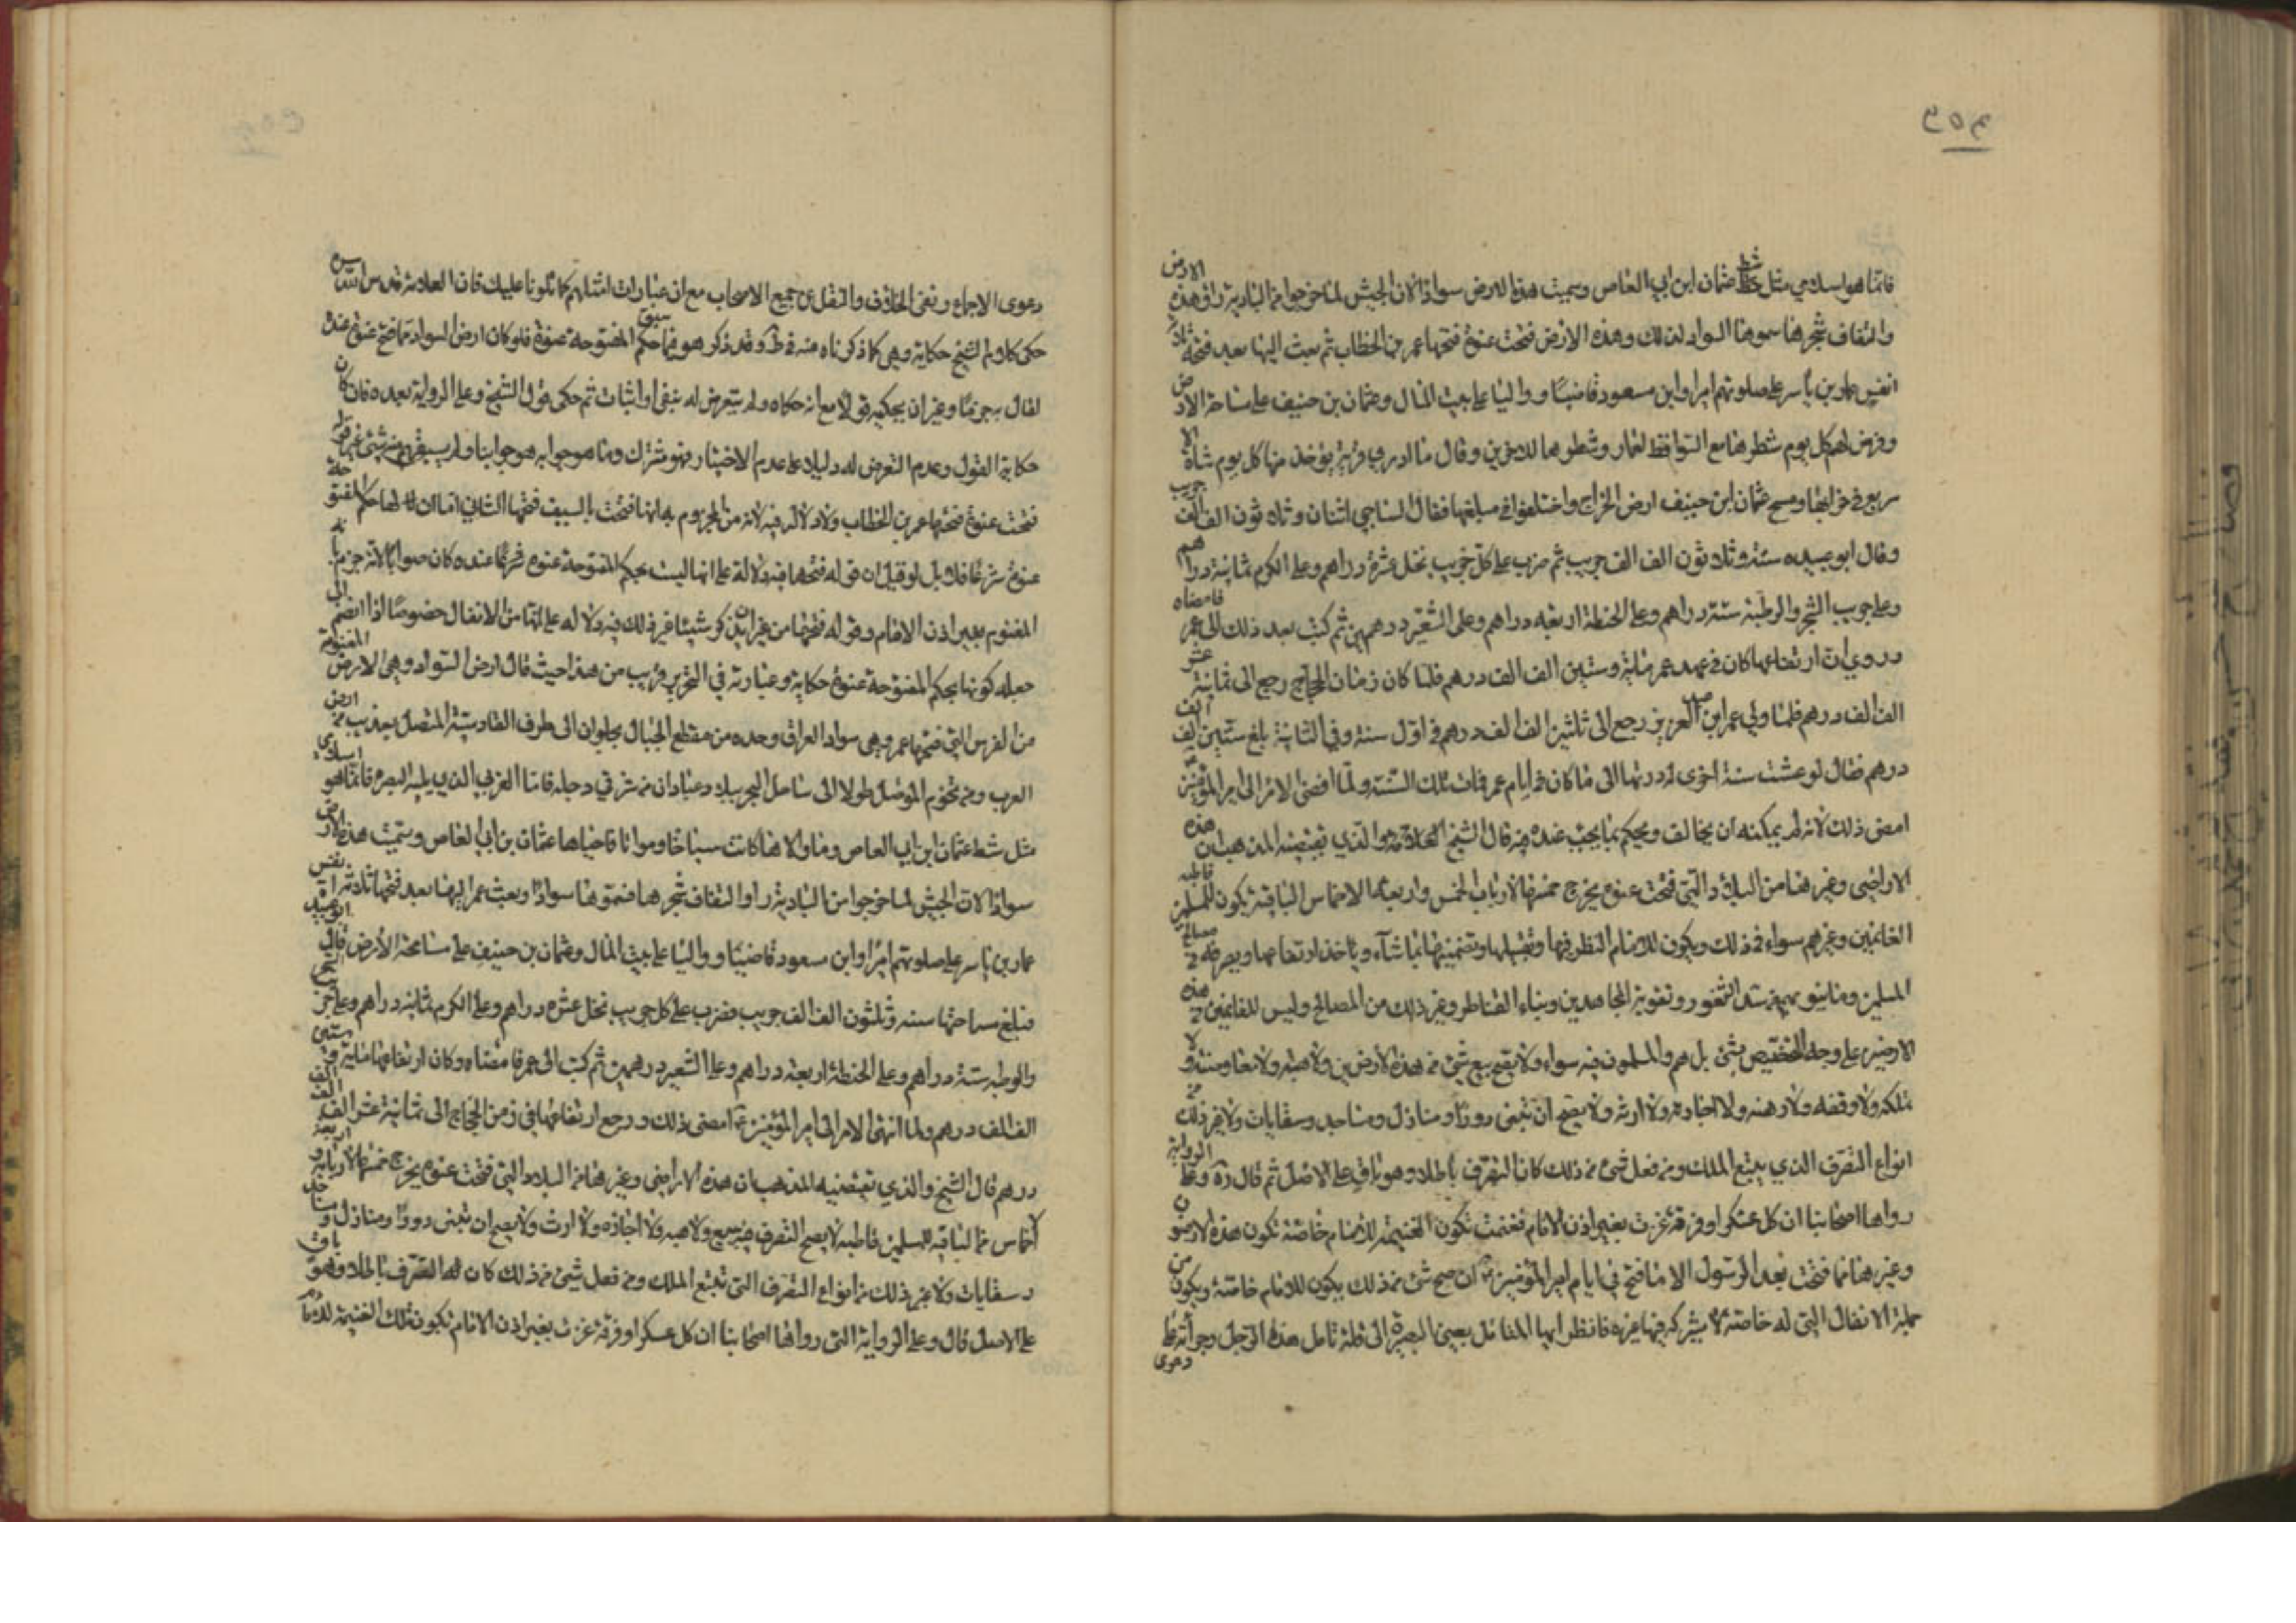 ٢٥٣
فانما هو اسلامي مثل شط عثمان ابن ابي العاص وسميت هذه الارض سوادا لان الجيش لما خرجوا من البادية راوا هذه الارض
والتفاف شجرها سموها السواد لذلك وهذه الارض فتحت عنوة فتحها عمر بن الخطاب ثم بعث اليها بعد فتحه ثلاثة
انفس عمار بن ياسر على صلوتهم اميرا وابن مسعود قاضيا وواليا على بيت المال وعثمان بن حنيف على مساحة الارض
وفرض لهم كل يوم شطرها مع السواقط لعمار وشطرها للاخرين وقال ما ارى قرية يؤخذ منها كل يوم شاة الا
سريع في خرابها ومسح عثمان ابن حنيف ارض الخراج واختلفوا في مبلغها فقال الساجي اثنان وثلاثون الف الف جريب
وقال ابو عبيده ستة وثلاثون الف الف جريب ثم ضرب على كل جريب نخل عشرة دراهم وعلى الكرم ثمانية دراهم
وعلى جريب الشجر والرطبة ستة دراهم وعلى الحنطة اربعه دراهم وعلى الشعير درهمين ثم كتب بعد ذلك الى عمر فامضاه
وروي ان ارتفاعها كان في عهد عمر مائة وستين الف الف درهم فلما كان زمان الحجاج رجع الى ثمانية عشر
الف الف درهم فلما ولي عمر ابن عبد العزيز رجع الى ثلثين الف الف درهم في اول سنة وفي الثانية بلغ ستين الف الف
درهم فقال لو عشت سنة اخرى لرددتها الى ما كان في ايام عمر فمات تلك السنة ولما افضى الامر الى امير المؤمنين
امضى ذلك لانه لم يمكنه ان يخالف ويحكم بما يجب عنده فيه قال الشيخ والذي يقتضيه المذهب ان هذه
الاراضي وغيرها من البلاد التي فتحت عنوة يخرج خمسها لارباب الخمس واربعة الاخماس الباقية يكون للمسلمين قاطبه
الغانمين وغيرهم سواء في ذلك ويكون للامام النظر فيها وتقبيلها وتضمينها بما شاء وياخذ ارتفاعها ويصرفه في مصالح
المسلمين وما ينوبهم من سد الثغور وتقوية المجاهدين وبناء القناطر وغير ذلك من المصالح وليس للغانمين في هذه
الارضين على وجه التخصيص شئ بل هم والمسلمون فيه سواء ولا يصح بيع شئ من هذه الارضين ولا هبته ولا معاوضته ولا
تملكه ولا وقفه ولا رهنه ولا اجارته ولا ارثه ولا يصح ان تبنى دورا ومنازل ومساجد وسقايات ولا غير ذلك من
انواع التصرف الذي يتبع الملك ومن فعل شئ من ذلك كان التصرف باطلا وهو باق على الاصل ثم قال ره وعلى الرواية
رواها اصحابنا ان كل عسكر او فرقة غزت بغير اذن الامام فغنمت تكون الغنيمة للامام خاصة تكون هذه الارضون
وغيرها مما فتحت بعد الرسول الا ما فتح في ايام امير المؤمنين ان صح شئ من ذلك يكون للامام خاصة ويكون من
جملة الانفال التي له خاصة لا يشركه فيها غيره فانظر ايها المتامل بعين البصيرة الى قلة تامل هذا الرجل وجرأته على
دعوى
دعوى الاجماع ونفى الخلاف والنقل عن جميع الاصحاب مع ان عبارات امثالهم كما تلونا عليك فان العلامة قدس الله سره
حكى كلام الشيخ حكاية وهي كما ذكرناه منه في وقد ذكر هو فيما سبق حكم المفتوحة عنوة فلو كان ارض السواد مما فتح عنوة عنده
لقال به جزما وغير ان يحكيه قولا مع انه حكاه ولم يتعرض له بنفي او اثبات ثم حكى قول الشيخ وعلى الرواية بعده فان كان
حكاية القول وعدم التعرض له دليلا على عدم الاختيار فهو مشترك وما هو جوابه هو جوابنا ولم يسبق منه شئ غير قوله
فتحت عنوة فتحها عمر بن الخطاب ولا دلالة فيه لانه من المجزوم به انها فتحت بالسيف فتحها الثاني اما ان لها حكم المفتوحة
عنوة شرعا فلا بل لو قيل ان قوله فتحها فيه دلالة على انها ليست بحكم المفتوحة عنوة شرعا عنده كان صوابا لانه جزم بانه
المغنوم بغير اذن الامام وقوله فتحها من غير ان يذكر شيئا غير ذلك فيه دلالة على انها من الانفال خصوصا اذا انضم الى
جعله كونها بحكم المفتوحة عنوة حكاية وعبارته في التحرير قريب من هذا حيث قال ارض السواد وهي الارض المغنومة
من الفرس التي فتحها عمر وهي سواد العراق وحده من منقطع الجبال بحلوان الى طرف القادسية المتصل بعذيب من ارض
العرب ومن تخوم الموصل طولا الى ساحل البحر ببلاد عبادان من شرقي دجله فاما الغربي الذي يليه البصره فانما هو اسلامي
مثل شط عثمان ابن ابي العاص وما والاها كانت سباخا ومواتا فاحياها عثمان بن ابي العاص وسميت هذه الارض
سوادا لان الجيش لما خرجوا من البادية راوا التفاف شجرها فسموها سوادا وبعث عمر اليها بعد فتحها ثلاثة انفس
عمار بن ياسر على صلوتهم اميرا وابن مسعود قاضيا وواليا على بيت المال وعثمان بن حنيف على مساحة الارض قال ابو عبيد
فبلغ مساحتها ستة وثلثون الف الف جريب فضرب على كل جريب نخل عشره دراهم وعلى الكرم ثمانيه دراهم وعلى الشجر
والرطبه ستة دراهم وعلى الحنطة اربعة دراهم وعلى الشعير درهمين ثم كتب الى عمر فامضاه وكان ارتفاعها مائة وستين
الف الف درهم ولما انتهى الامر الى امير المؤمنين امضى ذلك ورجع ارتفاعها في زمن الحجاج الى ثمانية عشر الف الف
درهم قال الشيخ والذي تقتضيه المذهب ان هذه الاراضي وغيرها من البلاد التي فتحت عنوة يخرج خمسها لاربابه واربعة
اخماس الباقيه للمسلمين قاطبه لا يصح التصرف فيه ببيع ولا هبه ولا اجاره ولا ارث ولا يصح ان تبنى دورا ومنازل ومساجد
وسقايات ولا غير ذلك من انواع التصرف التي تتبع الملك ومن فعل شئ من ذلك كان التصرف باطلا وهو باق
على الاصل قال وعلى الرواية التي رواها اصحابنا ان كل عسكر او فرقة غزت بغير اذن الامام تكون تلك الغنيمة للامام